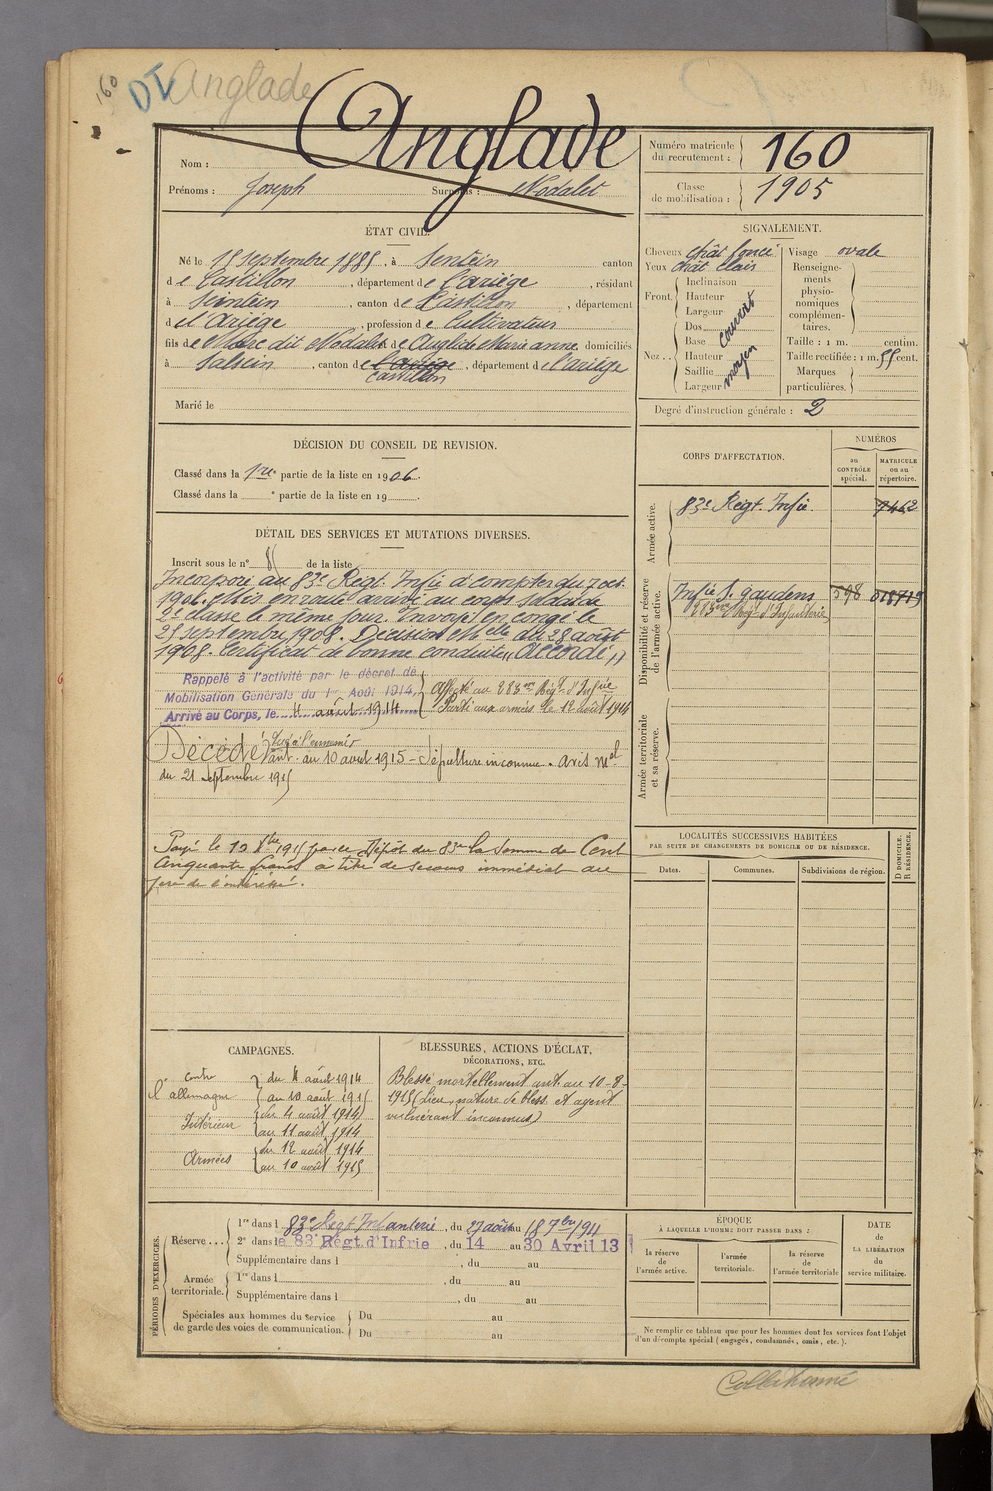 160
DI Anglade
Nom : Anglade
Prénoms : Joseph Surnoms : Nodalet
Numéro matricule du recrutement : 160
Classe de mobilisation : 1905
ÉTAT CIVIL.
Né le 15 septembre 1885, à Sentein canton
de Castillon, département de l'ariège, résidant
à Sentein, canton de Castillon, département
d l'Ariège, profession de Cultivateur
fils de dit Nodalet et de Anglade Marie anne domiciliés
à Salsein, canton de l'ariège castillon, département de l'ariège
Marié le
SIGNALEMENT.
Cheveux chât foncé
Yeux chât clair
Front. Inclinaison
Hauteur
Largeur
Nez .. Dos
Base
Hauteur
Saillie
Largeur
moyen
Visage ovale
Renseigne-
ments
physio-
nomiques
complémen-
taires.
Taille : 1 m. centim.
Taille rectifiée : 1 m. 55 cent.
Marques
particulières.
Degré d'instruction générale : 2
DÉCISION DU CONSEIL DE REVISION.
Classé dans la 1re partie de la liste en 1906.
Classé dans la e partie de la liste en 19
DÉTAIL DES SERVICES ET MUTATIONS DIVERSES.
Inscrit sous le n° de la liste
Incorporé au 83e Regt. Infie à compter du 7 oct.
1906. Mis en route arrivé au corps soldat de
2e classe le même jour. Envoyé en congé le
25 septembre 1908. Décision Mlle du 28 août
1908. Certificat de bonne conduite "Accordé"
Rappelé à l'activité par le décret de
Mobilisation Générale du 1er Août 1914,
Arrivé au Corps, le 4 août 1914
Affecté au 283me Régt d'Infie
Parti aux armées le 12 août 1914
Décédé Tué à l'ennemi
ant. au 10 août 1915 - Sépulture inconnue. avis mel
du 21 septembre 1915
Payé le 12 8bre 1915 par le Dépôt du 83me la somme de Cent
cinquante francs à titre de secours immédiat au
père de l'intéressé.
CORPS D'AFFECTATION.
NUMÉROS
au CONTRÔLE spécial.
MATRICULE ou au répertoire.
Armée active.
83e Régt. Infie. 7462
Disponibilité et réserve de l'armée active.
Infie S. gaudens 598
283me Rég. d'Infanterie
Armée territoriale et sa réserve.
LOCALITÉS SUCCESSIVES HABITÉES
PAR SUITE DE CHANGEMENTS DE DOMICILE OU DE RÉSIDENCE.
Dates. Communes. Subdivisions de région.
D DOMICILE.
R RÉSIDENCE.
CAMPAGNES.
contre l'allemagne du 4 août 1914
au 10 août 1915
Intérieur du 4 août 1914
au 11 août 1914
Armées du 12 août 1914
au 10 août 1915
BLESSURES, ACTIONS D'ÉCLAT,
DÉCORATIONS, ETC.
Blessé mortellement ant. au 10-8-
1915 (Lieu, nature de bless. et agent
vulnérant inconnus)
PÉRIODES D'EXERCICES.
Réserve ... 1re dans l 83e Regt Infanterie, du 27 août au 18 7bre 1911
2e dans le 83e Régt d'Infrie, du 14 au 30 Avril 13
Supplémentaire dans l , du au
Armée territoriale. 1re dans l , du au
Supplémentaire dans l , du au
Spéciales aux hommes du service
de garde des voies de communication.
Du au
Du au
ÉPOQUE
À LAQUELLE L'HOMME DOIT PASSER DANS :
la réserve de l'armée active.
l'armée territoriale.
la réserve de l'armée territoriale
DATE
DE
LA LIBÉRATION
du
service militaire.
Ne remplir ce tableau que pour les hommes dont les services font l'objet
d'un décompte spécial (engagés, condamnés, omis, etc.).
Collationné